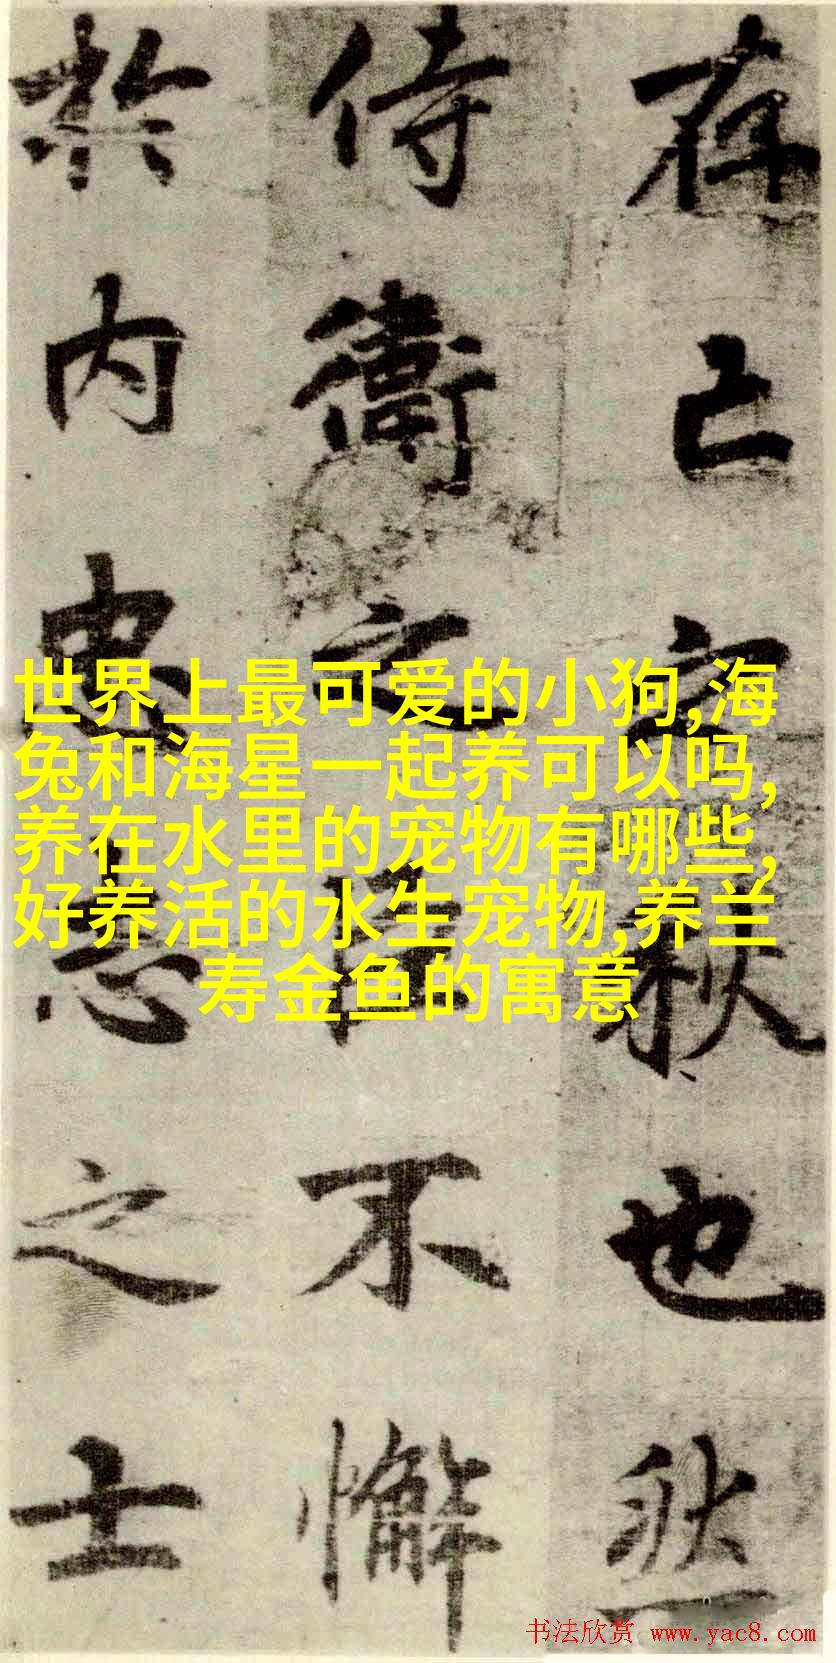 存亡之秋也然
侍衛之臣不懈
於内忠志之士
世界上最可爱的小狗,海
兔和海星一起养可以吗,
养在水里的宠物有哪些,
好养活的水生宠物,养兰
寿金鱼的寓意
书法欣赏 www.yac8.com